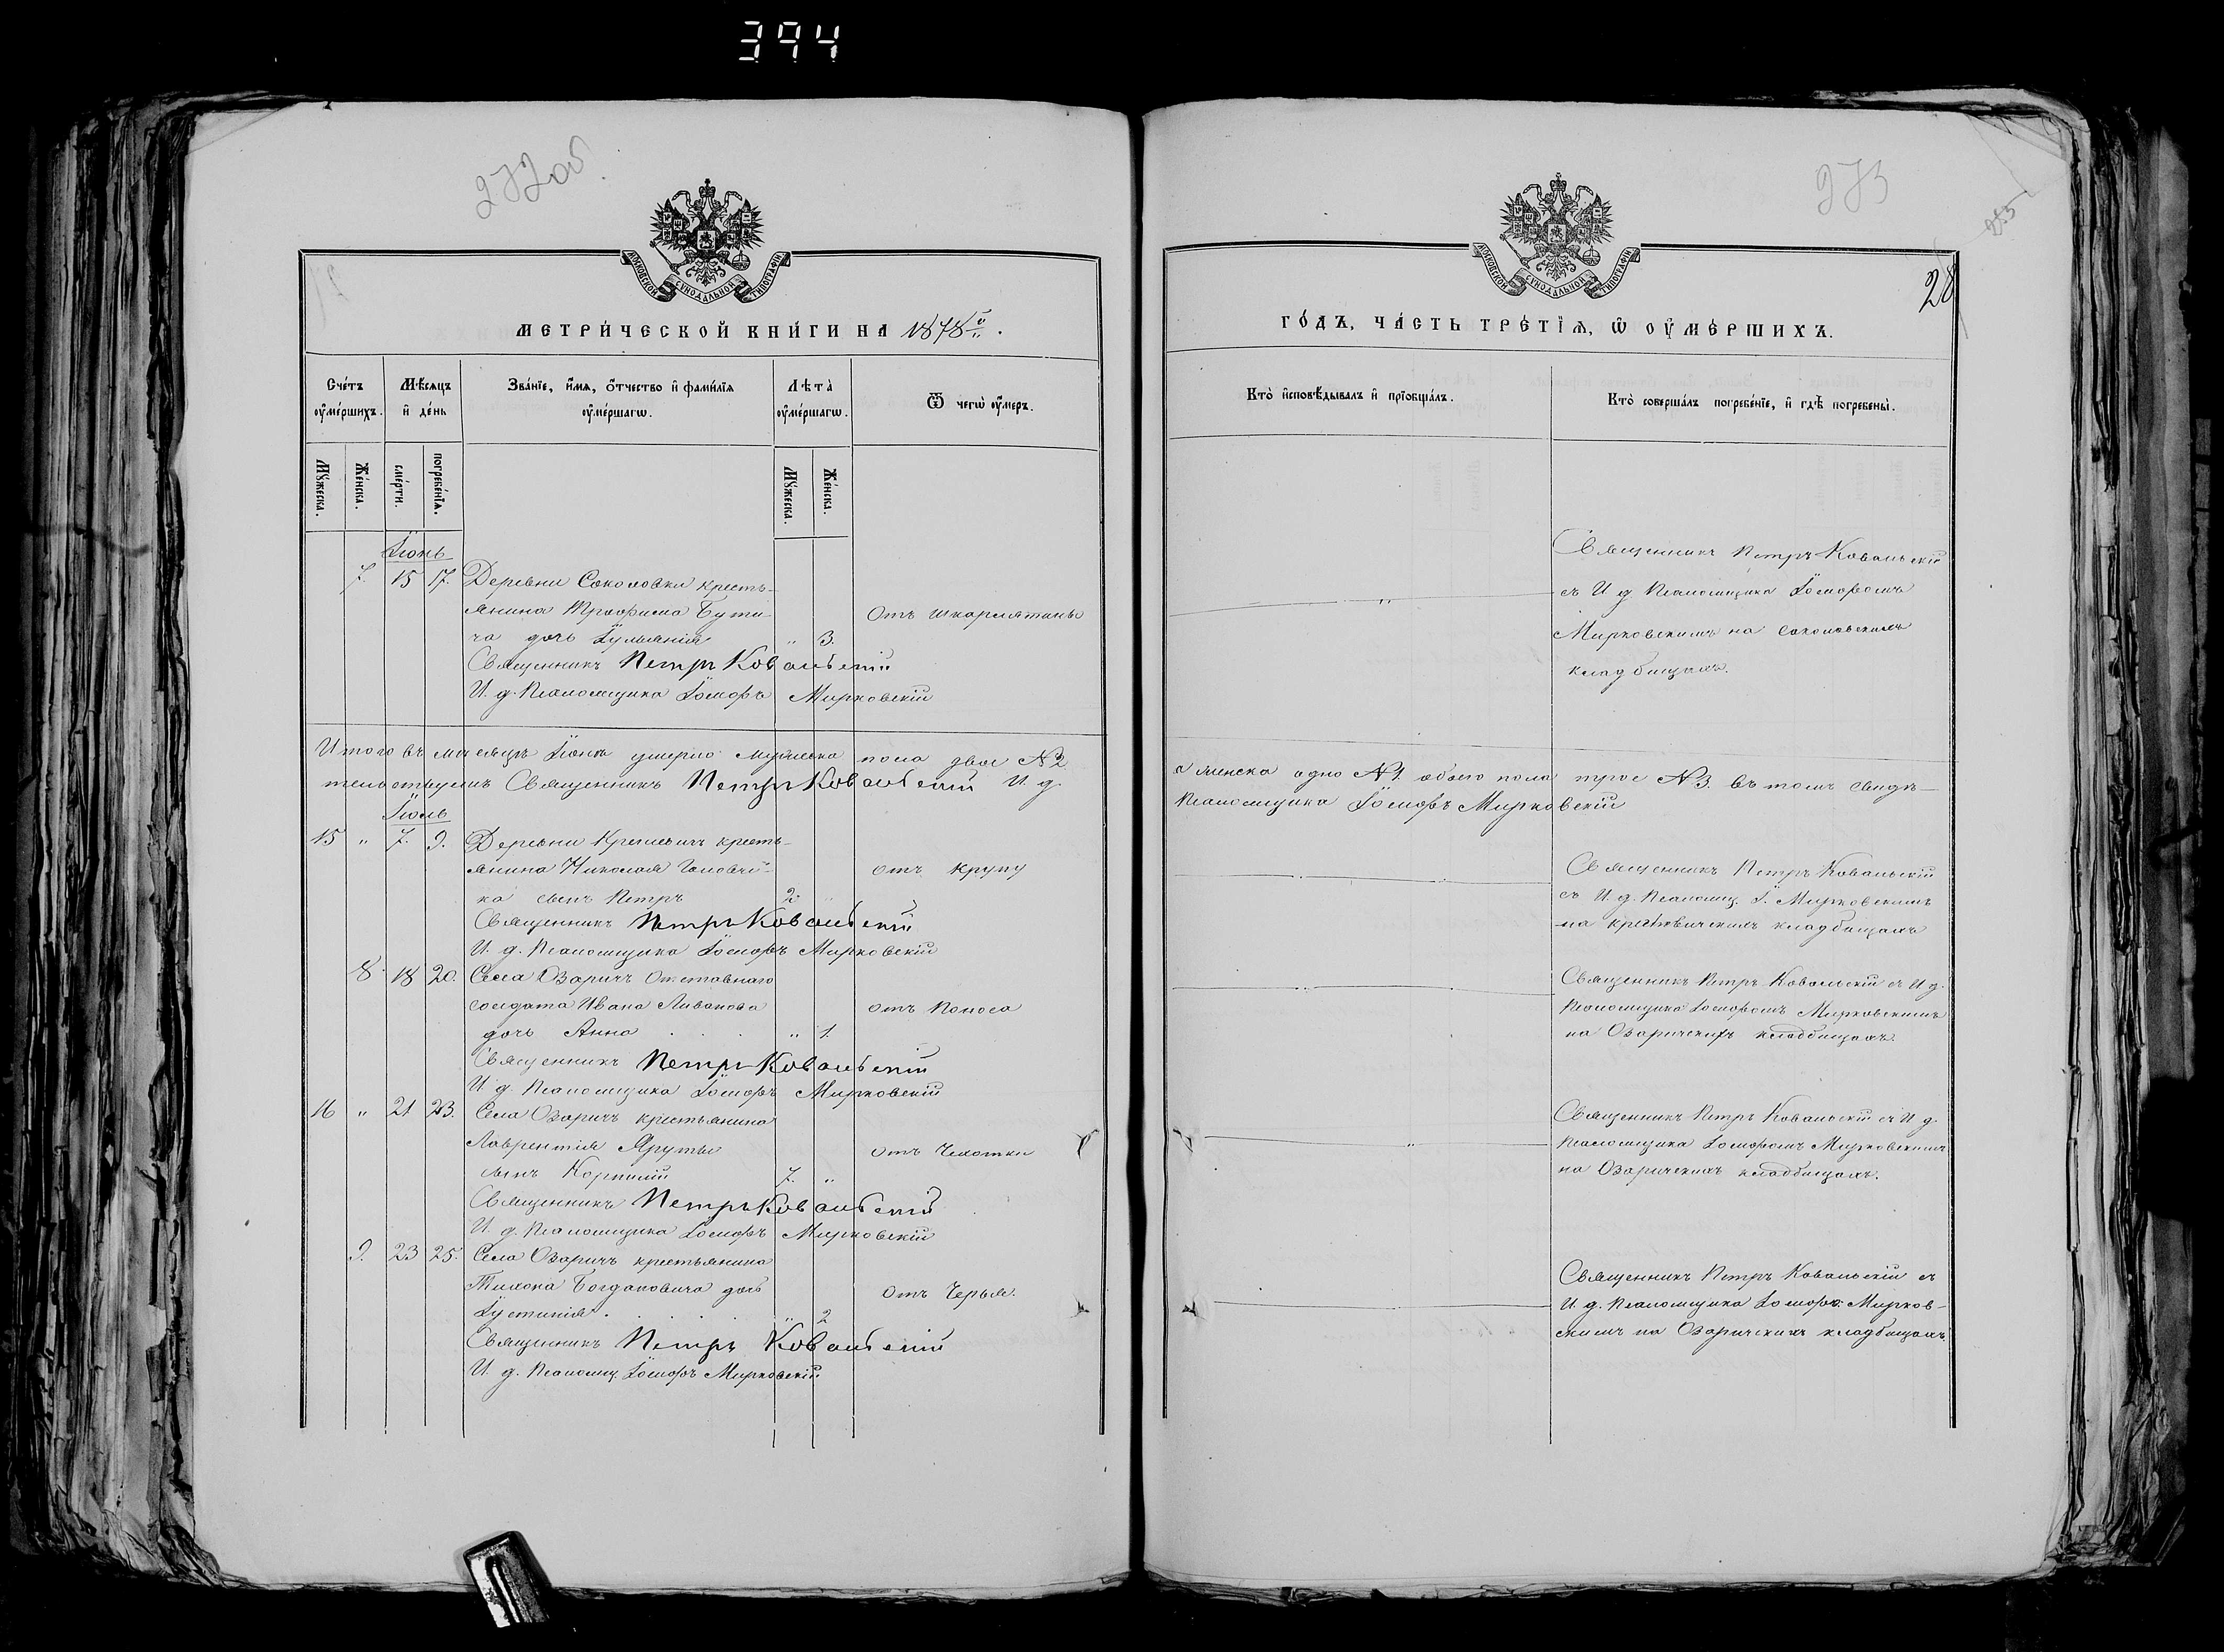 394
272 об.
МОСКОВСКОЙ СУНОДАЛЬНОЙ ТИПОГРАФІИ
МЕТРИ́ЧЕСКОЙ КНИ́ГИ НА 1878й.
Сче́тъ оу҆ме́ршихъ.
Мѣ́сяцъ и҆ де́нь
Зва́нїе, и҆́мя, ѻ҆́тчество и҆ фами́лїя оу҆ме́ршагѡ.
Лѣта̀ оу҆ме́ршагѡ.
Ѿ чегѡ̀ оу҆́меръ.
Мꙋ́жеска.
Же́нска.
сме́рти.
погребе́нїѧ.
Мꙋ́жеска.
Же́нска.
Іюнь
7. 15 17. Деревни Соколовки кресть-
янина Трофима Бути-
ча дочь Іульянія " 3. отъ шкарлятины
Священникъ Петръ Ковальскій
И. д. Псаломщика Іосифъ Мирковскій
Итого въ мѣсяцѣ Іюнѣ умерло мужеска пола двое №2
тельствуемъ Священникъ Петръ Ковальскій И. д.
Іюль
15 " 7. 9. Деревни Кремевичъ кресть-
янина Николая
ка сынъ Петръ 2 " отъ крупу
Священникъ Петръ Ковальскій
И. д. Псаломщика Іосифъ Мирковскій
8. 18 20. Села Озаричъ Отставнаго
солдата Ивана Ливанова отъ Поноса
дочь Анна " 1.
Священникъ Петръ Ковальскій
И. д. Псаломщика Іосифъ Мирковскій
16 " 21 23. Села Озаричъ крестьянина
Лаврентія Яруты отъ Чехотки
сынъ Корнилій 7. "
Священникъ Петръ Ковальскій
И. д. Псаломщика Іосифъ Мирковскій
9. 23 25. Села Озаричъ крестьянина
Тихона Богдановича дочь отъ Черья.
Іустинія. " 2
Священникъ Петръ Ковальскій
И. д. Псаломщ. Іосифъ Мирковскій
273
28
МОСКОВСКОЙ СУНОДАЛЬНОЙ ТИПОГРАФІИ
ГО́ДЪ, ЧА́СТЬ ТРЕ́ТЇѦ, Ѡ҆ ОУ҆МЕ́РШИХЪ.
Кто̀ и҆сповѣ́дывалъ и҆ прїобща́лъ.
Кто̀ соверша́лъ погребе́нїе, и҆ гдѣ̀ погребены̀.
Священникъ Петръ Ковальскій
съ И д Псаломщика Іосифомъ
Мирковскимъ на Соколовскихъ
кладбищахъ.
а женска одно №1. обоего пола трое №3. въ томъ свидѣ-
Псаломщика Іосифъ Мирковскій
Священникъ Петръ Ковальскій
съ И. д. Псаломщ. І. Мирковскимъ
на кладбищахъ
Священникъ Петръ Ковальскій съ И д.
Псаломщика Іосифомъ Мирковскимъ
на Озаричскихъ кладбищахъ.
Священникъ Петръ Ковальскій съ И д.
Псаломщика Іосифомъ Мирковскимъ
на Озаричскихъ кладбищахъ.
Священникъ Петръ Ковальскій съ
И. д. Псаломщика Іосифо: Мирков-
скимъ на Озаричскихъ кладбищахъ